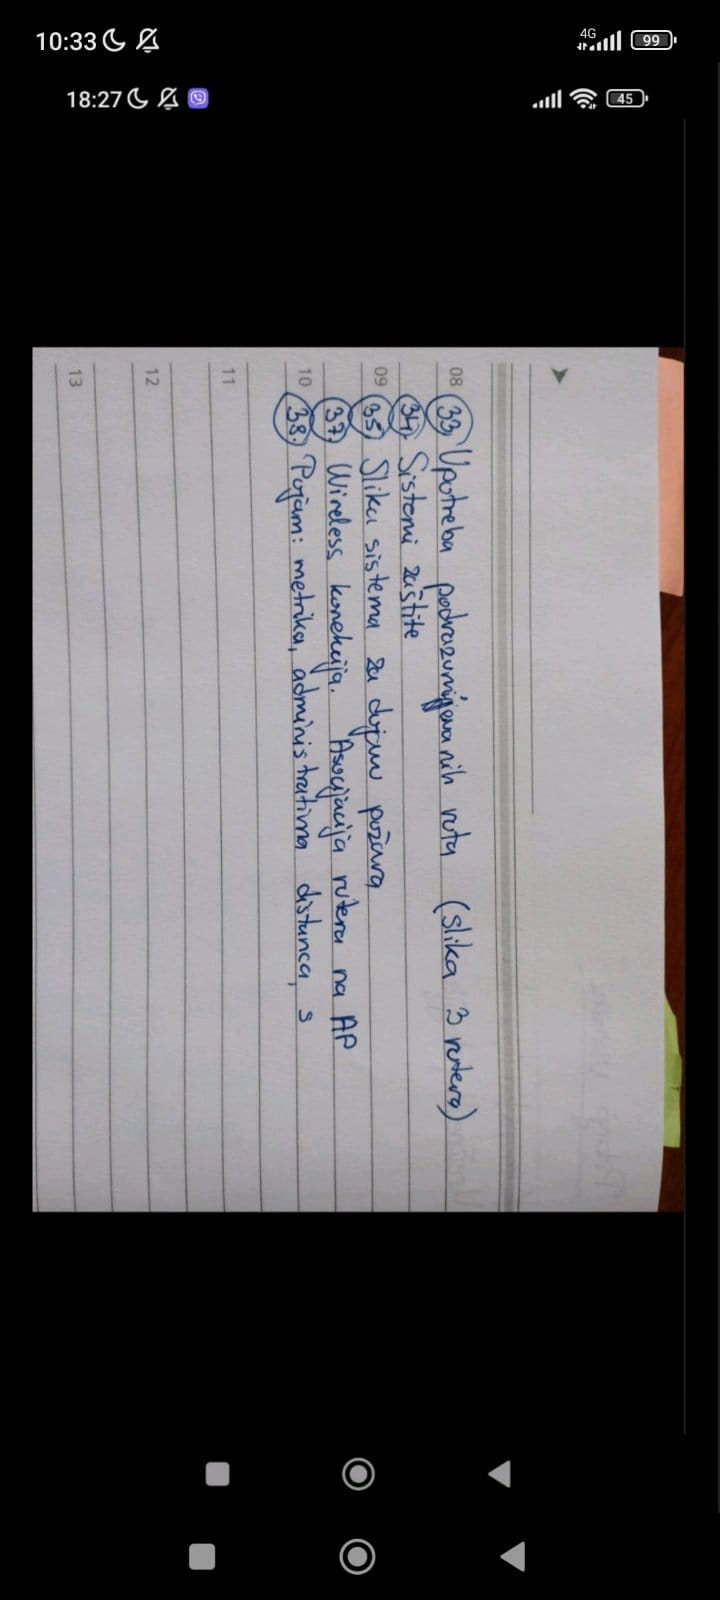 08 33. Upotreba podrazumijevanih ruta (slika 3 rutera)
34. Sistemi zaštite
09 35. Slika sistema za dojavu požara
37. Wireless konekcija. Asocijacija rutera na AP
10 38. Pojam: metrika, administrativna distanca, s
11
12
13
10:33
18:27
4G
99
45